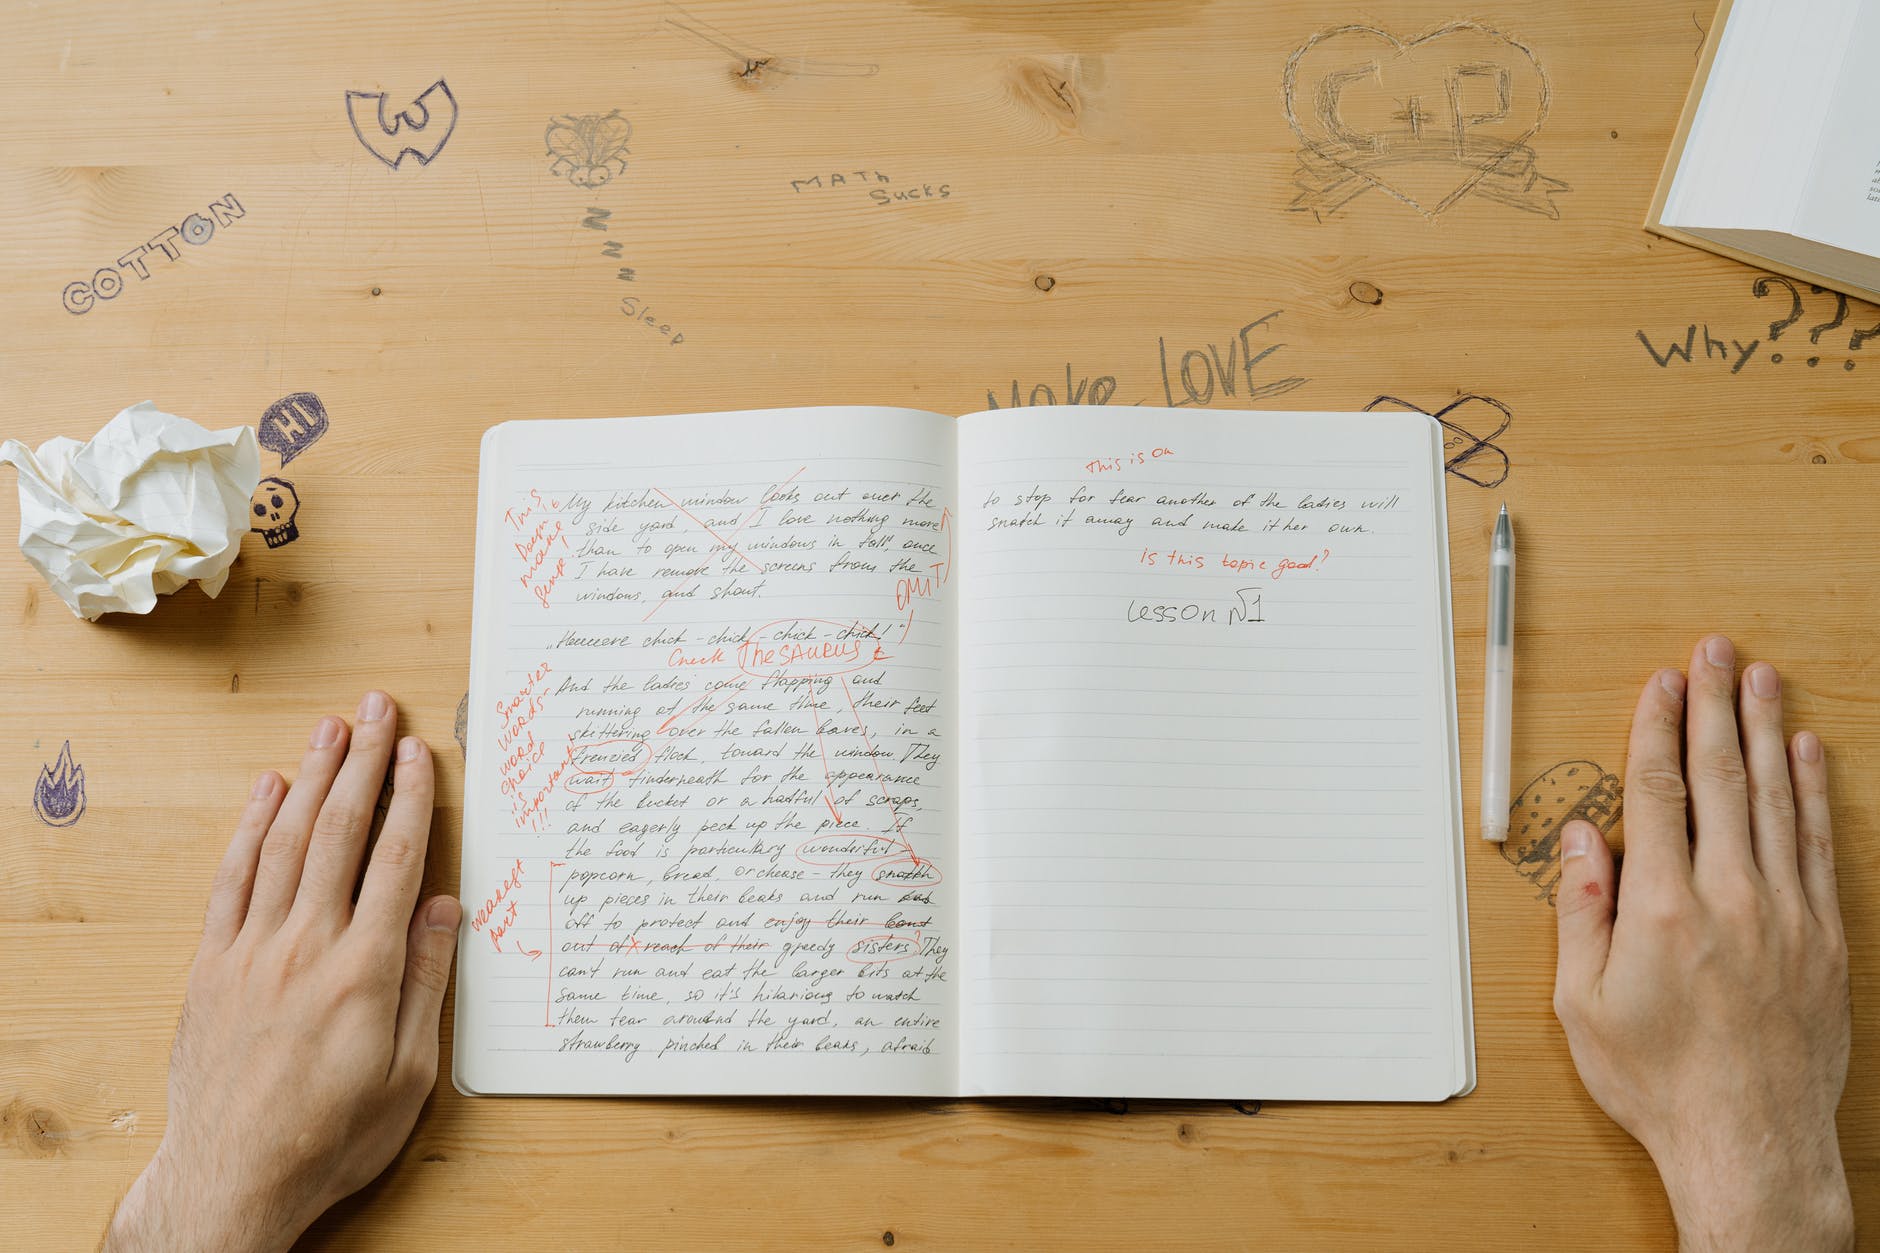 W
COTTON
MATh
Sucks
Sleep
C+P
Make LOVE
Why???
HI
This is on
This is
Doesn't
make
sense!
My kitchen window looks out over the
side yard and I love nothing more
than to open my windows in fall, once
I have remove the screens from the
windows, and shout.
OMIT
„Heeeeere chick-chick-chick-chick!"
Check TheSAURUS
Smarter
words -
word
choice
is
important
!!!
And the ladies come flapping and
running at the same time, their feet
skittering over the fallen leaves, in a
frenzied flock, toward the window. They
wait underneath for the appearance
of the bucket or a hadful of scraps,
and eagerly peck up the piece. If
the food is particullary wonderful -
weakest
part
popcorn, bread, or chease - they snatch
up pieces in their beaks and run
off to protect and enjoy their
out of reach of their greedy sisters? They
can't run and eat the larger bits at the
same time, so it's hilarious to watch
them tear around the yard, an entire
strawberry pinched in their beaks, afraid
to stop for fear another of the ladies will
snatch it away and make it her own.
is this topic good?
Lesson №1